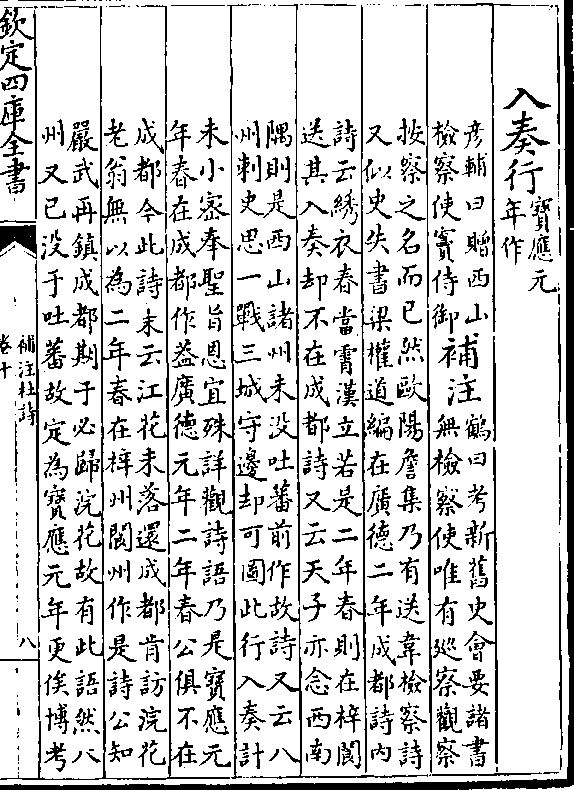 入奏行 寶應元
年作
彥輔曰贈西山
檢察使竇侍御
補注
鶴曰考新舊史會要諸書
無檢察使唯有廵察觀察
按察之名而已然歐陽詹集乃有送韋檢察詩
又似史失書梁權道編在廣德二年成都詩内
詩云綉衣春當霄漢立若是二年春則在梓閬
送其入奏却不在成都詩又云天子亦念西南
隅則是西山諸州未没吐蕃前作故詩又云八
州刺史思一戰三城守邊却可圖此行入奏計
未小宻奉聖旨恩宜殊詳觀詩語乃是寶應元
年春在成都作葢廣德元年二年春公俱不在
成都今此詩末云江花未落還成都肯訪浣花
老翁無以為二年春在梓州閬州作是詩公知
嚴武再鎮成都期于必歸浣花故有此語然八
州又已没于吐蕃故定為寶應元年更俟博考
欽定四庫全書
補注杜詩
卷十
八